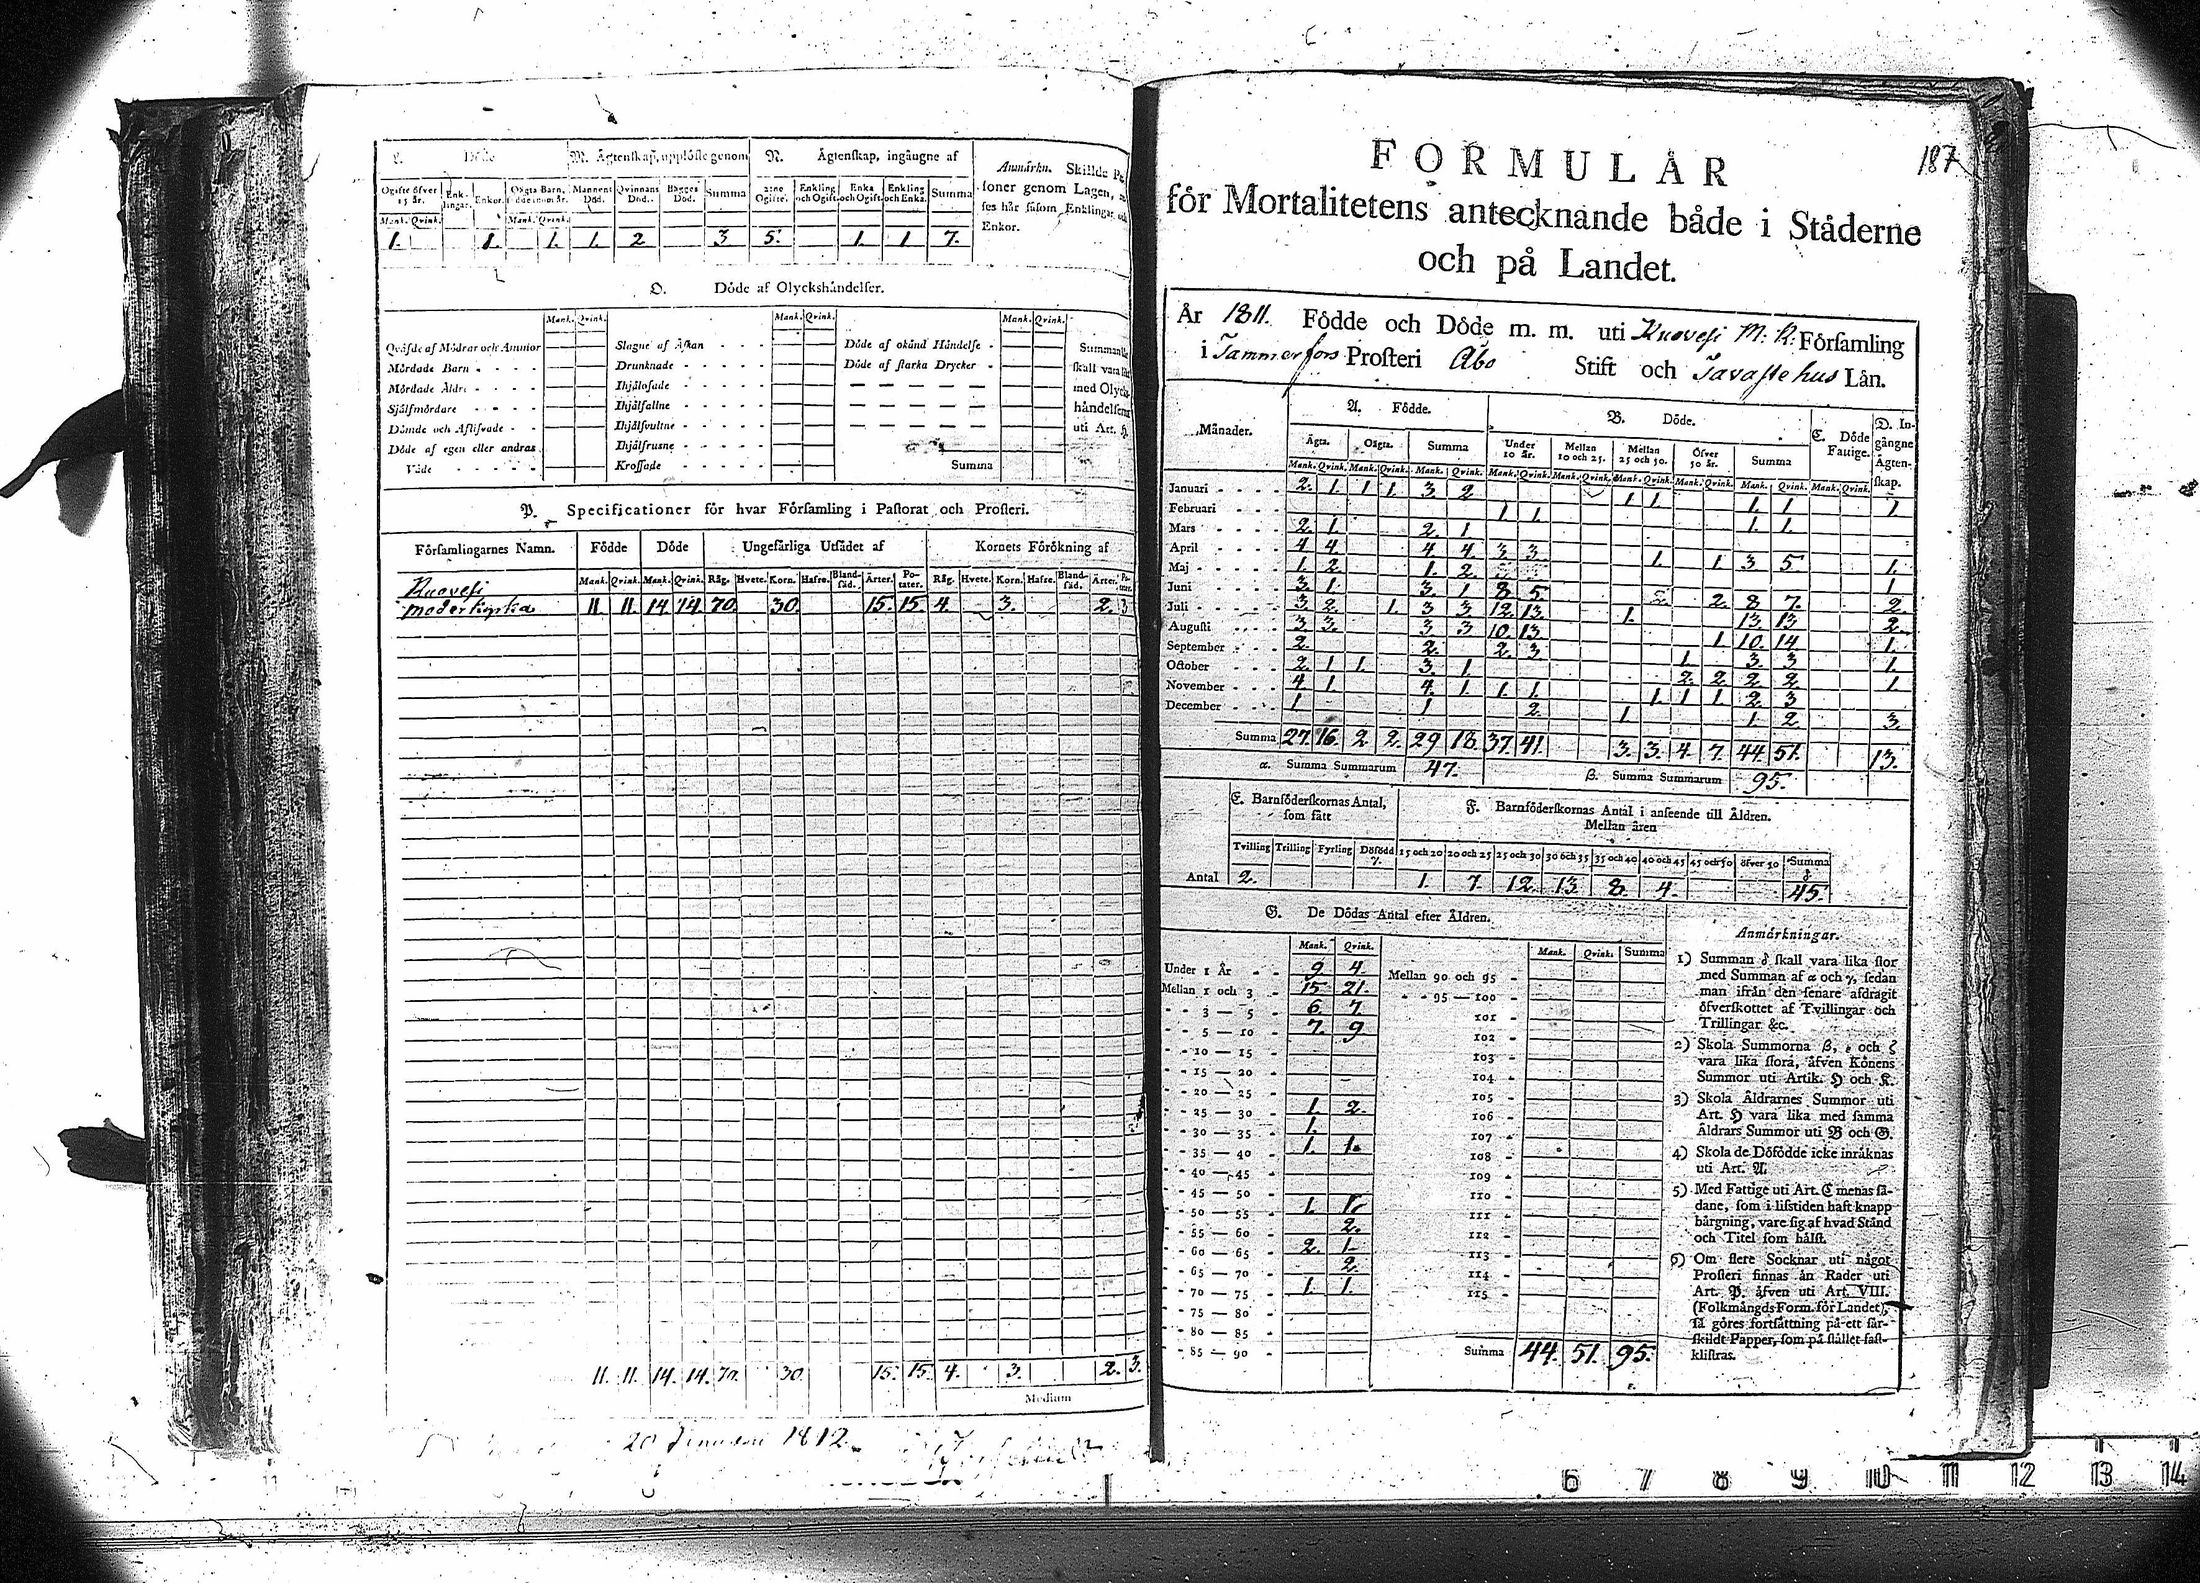 L. Döde
M. Ägtenskap, upplöste genom
N. Ägtenskap, ingångne af
Anmärkn. Skillde Per-
soner genom Lagen,
ses här såsom Enklingar och
Enkor.
Ogifte öfver 15 år. Enklingar. Enkor. Oägta Barn, döde inom år. Mannens Död. Qvinnans Död. Bägges Död. Summa 2:ne Ogifte. Enkling och Ogift. Enka och Ogift. Enkling och Enka. Summa
Mank. Qvink. Mank. Qvink.
1. 1. 1. 1. 2. 3. 5. 1. 1. 7.
O. Döde af Olyckshändelser.
Mank. Qvink. Mank. Qvink. Mank. Qvink.
Qväfde af Mödrar och Ammor Slagne af Åskan Döde af okänd Händelse
Mördade Barn Drunknade Döde af starka Drycker
Mördade Äldre Ihjälosade
Sjelfmördare Ihjälfallne
Dömde och Aflifvade Ihjälsvultne
Döde af egen eller andras Ihjälfrusne
Våde Krossade Summa
Summan
skall vara
med Olycks-
händelserna
uti Art. H.
P. Specificationer för hvar Församling i Pastorat och Prosteri.
Församlingarnes Namn. Födde Döde Ungefärliga Utsädet af Kornets Förökning af
Mank. Qvink. Mank. Qvink. Råg. Hvete. Korn. Hafre. Bland-säd. Ärter. Po-tater. Råg. Hvete. Korn. Hafre. Bland-säd. Ärter. Po-tater.
Ruovesi
moderkyrka 11 11 14 14 70. 30. 15. 15 4. 3. 2. 3
11. 11. 14. 14. 70. 30. 15. 15. 4. 3. 2. 3.
Medium
20 Januari 1812.
187
FORMULÄR
för Mortalitetens antecknande både i Städerne
och på Landet.
År 1811. Födde och Döde m. m. uti Ruovesi M: K: Församling
i Tammerfors Prosteri Åbo Stift och Tavastehus Län.
Månader. A. Födde. B. Döde. C. Döde Fattige. D. In-gångne Ägten-skap.
Ägta. Oägta. Summa Under 10 år. Mellan 10 och 25. Mellan 25 och 50. Öfver 50 år. Summa
Mank. Qvink. Mank. Qvink. Mank. Qvink. Mank. Qvink. Mank. Qvink. Mank. Qvink. Mank. Qvink. Mank. Qvink. Mank. Qvink.
Januari 2. 1. 1 1. 3. 2 1. 1. 1. 1. 1
Februari 1. 1. 1. 1.
Mars 2. 1. 2. 1
April 4 4. 4. 4. 3 3 1. 1 3 5 1.
Maj 1. 2. 1. 2. 1
Juni 3. 1. 3. 1 8 5. 2. 8 7. 2.
Juli 3 2. 1. 3 3 12. 13. 1. 13. 13 2.
Augusti 3. 3. 3 3 10. 13. 1 10. 14 1.
September 2. 2. 2. 3 1. 3. 3 1.
October 2. 1 1. 3. 1 2. 2. 2 2 1
November 4. 1. 4. 1 1. 1. 1. 1 1 2. 3
December 1. 1 2. 1. 1. 2. 3.
Summa 27. 16. 2. 2. 29 18. 37. 41. 3. 3. 4. 7. 44. 51. 13.
α. Summa Summarum 47. β. Summa Summarum 95.
E. Barnföderskornas Antal,
som fått
F. Barnföderskornas Antal i anseende till Åldren.
Mellan åren
Tvilling Trilling Fyrling Dödfödd γ. 15 och 20 20 och 25 25 och 30 30 och 35 35 och 40 40 och 45 45 och 50 öfver 50 Summa δ
Antal 2. 1. 7. 12. 13 8. 4. 45.
G. De Dödas Antal efter Åldren.
Mank. Qvink. Mank. Qvink. Summa
Under 1 År 9 4. Mellan 90 och 95
Mellan 1 och 3 15 21. 95 — 100
3 — 5 6. 7. 101
5 — 10 7. 9 102
10 — 15 103
15 — 20 104
20 — 25 105
25 — 30 1. 2. 106
30 — 35 1. 107
35 — 40 1. 1. 108
40 — 45 109
45 — 50 110
50 — 55 1. 1. 111
55 — 60 2. 112
60 — 65 2. 1 113
65 — 70 2. 114
70 — 75 1. 1. 115
75 — 80
80 — 85
85 — 90 Summa 44. 51. 95.
Anmärkningar.
1) Summan δ skall vara lika stor
med Summan af α och γ, sedan
man ifrån den senare afdragit
öfverskottet af Tvillingar och
Trillingar &c.
2) Skola Summorna β, ε och ζ
vara lika stora, äfven Könens
Summor uti Artik. H och K.
3) Skola Åldrarnes Summor uti
Art. H vara lika med samma
Åldrars Summor uti B och G.
4) Skola de Dödfödde icke inräknas
uti Art. A.
5) Med Fattige uti Art. C menas så-
dane, som i lifstiden haft knapp
bärgning, vare sig af hvad Stånd
och Titel som hälst.
6) Om flere Socknar uti något
Prosteri finnas än Rader uti
Art. P. äfven uti Art. VIII.
(Folkmängds Form. för Landet),
så göres fortsättning på ett sär-
skildt Papper, som på stället fast-
klistras.
6 7 8 9 10 11 12 13 14